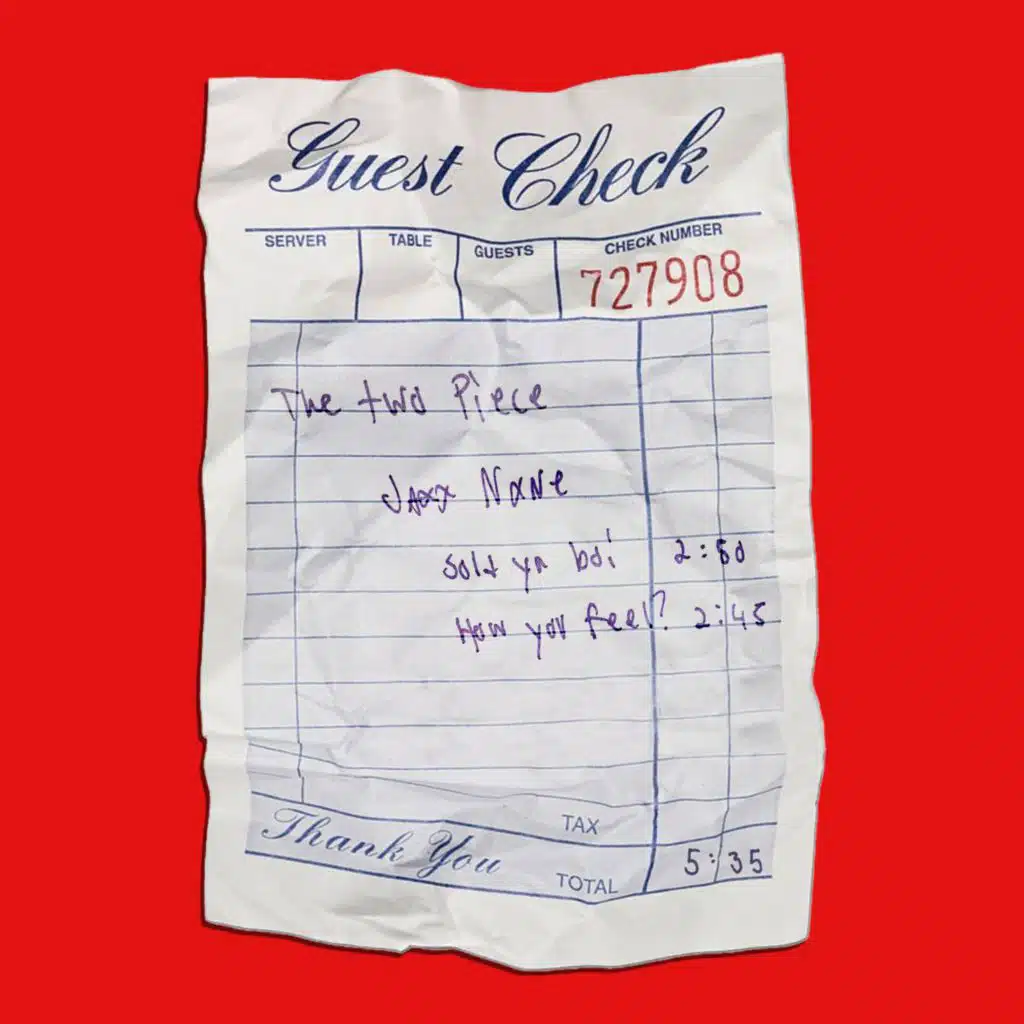 Guest Check
SERVER TABLE GUESTS CHECK NUMBER
727908
The two Piece
JAxx NxNe
Sold yn boi 2:50
How you feel? 2:45
TAX
Thank You
TOTAL 5:35